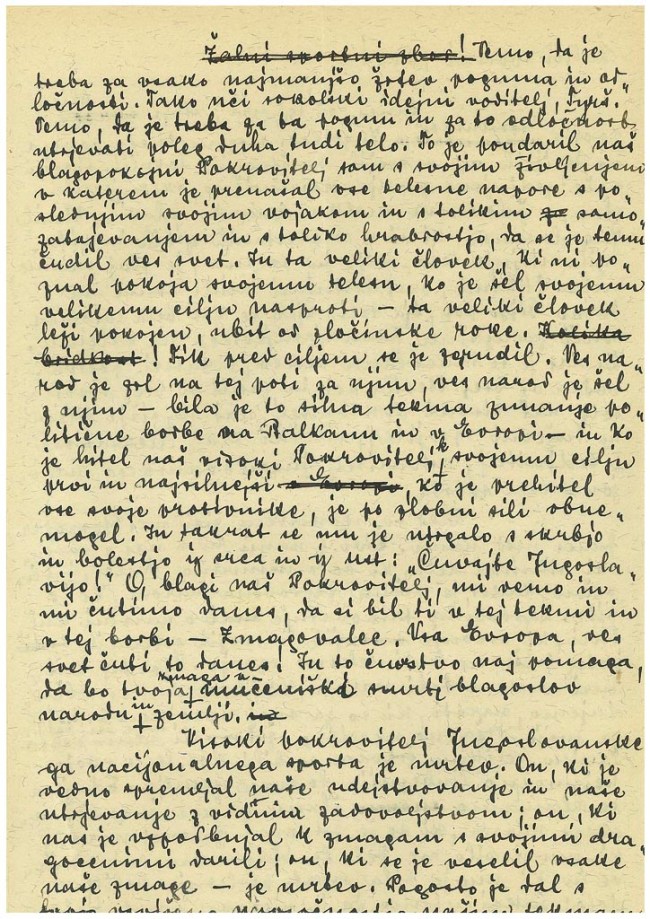 Žalni sportni zbor! Vemo, da je
treba za vsako najmanjšo žrtev poguma in od„
ločnosti. Tako uči sokolski idejni voditelj, Tyrš.
Vemo, da je treba za ta pogum in za to odločnost
utrjevati poleg duha tudi telo. To je poudaril naš
blagopokojni Pokrovitelj sam s svojim življenjem
v katerem je prenašal vse telesne napore s po„
slednjim svojim vojakom in s tolikim za samo„
zatajevanjem in s toliko hrabrostjo, da se je temu
čudil ves svet. In ta veliki človek, ki ni po„
znal pokoja svojemu telesu, ko je šel svojemu
velikemu cilju nasproti – ta veliki človek
leži pokojen, ubit od zločinske roke. Kolika
bridkost! Tik pred ciljem se je zgrudil. Ves na„
rod je zrl na tej poti za njim, ves narod je šel
z njim – bila je to silna tekma zunanje po„
litične borbe na Balkanu in v Evropi – in ko
je hitel naš visoki Pokrovitelj k svojemu cilju
prvi in najsilnejši v Evropi, ko je prehitel
vse svoje protivnike, je po zlobni sili obne„
mogel. In takrat se mu je utrgalo s skrbjo
in bolestjo iz srca in iz ust: „Čuvajte Jugosla„
vijo!" O, blagi naš Pokrovitelj, mi vemo in
mi čutimo danes, da si bil ti v tej tekmi in
v tej borbi – Zmagovalec. Vsa Evropa, ves
svet čuti to danes! In to čuvstvo naj pomaga,
da bo tvoja zmaga v mučeniški smrti blagoslov
narodu in zemlji. in
Visoki pokrovitelj Jugoslovanske
ga nacijonalnega sporta je mrtev. On, ki je
vedno spremljal naše udejstvovanje in naše
utrjevanje z vidnim zadovoljstvom; on, ki
nas je vzpodbujal k zmagam s svojimi dra„
gocenimi darili; on, ki se je veselil vsake
naše zmage – je mrtev. Pogosto je dal s